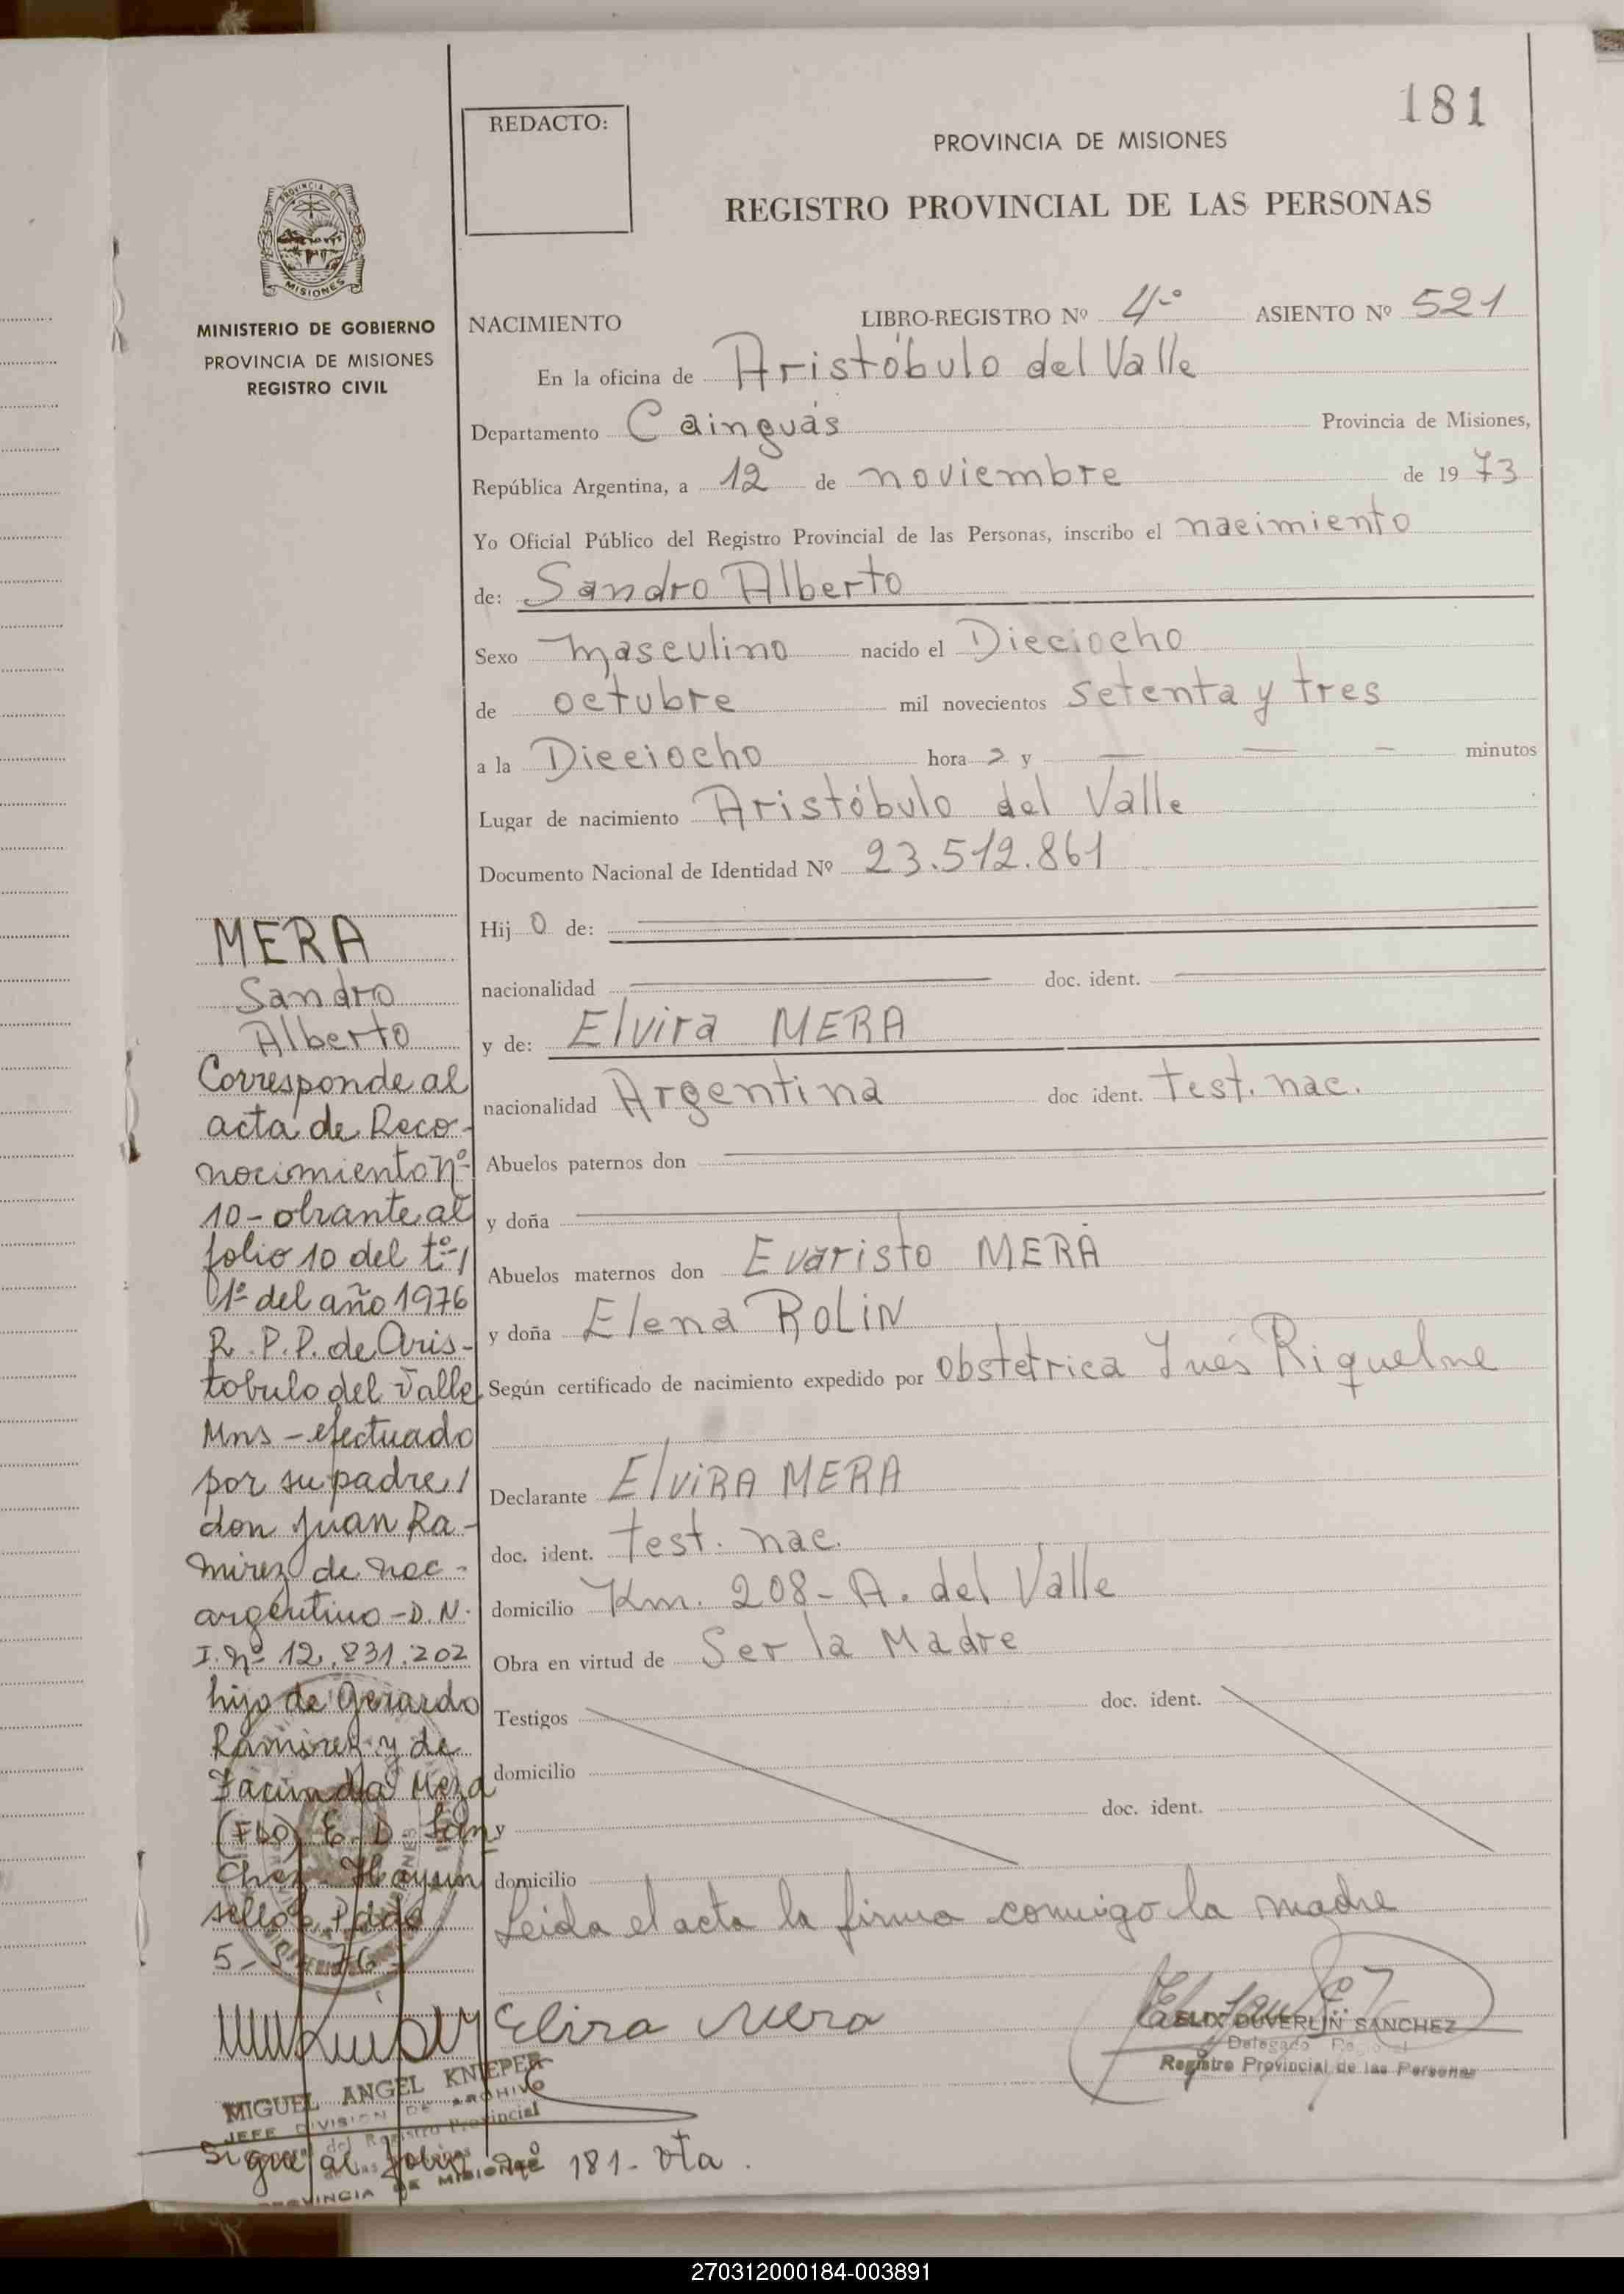 181
REDACTO:
PROVINCIA DE MISIONES
REGISTRO PROVINCIAL DE LAS PERSONAS
PROVINCIA DE
MISIONES
MINISTERIO DE GOBIERNO
PROVINCIA DE MISIONES
REGISTRO CIVIL
NACIMIENTO LIBRO-REGISTRO Nº 4º ASIENTO Nº 521
En la oficina de Aristóbulo del Valle
Departamento Cainguás Provincia de Misiones,
República Argentina, a 12 de noviembre de 1973
Yo Oficial Público del Registro Provincial de las Personas, inscribo el nacimiento
de: Sandro Alberto
Sexo masculino nacido el Dieciocho
de octubre mil novecientos setenta y tres
a la Dieciocho hora s y — — — minutos
Lugar de nacimiento Aristóbulo del Valle
Documento Nacional de Identidad Nº 23.512.861
Hijo de:
nacionalidad doc. ident.
y de: Elvira MERA
nacionalidad Argentina doc ident. test. nac.
Abuelos paternos don
y doña
Abuelos maternos don Evaristo MERA
y doña Elena ROLIN
Según certificado de nacimiento expedido por obstetrica Inés Riquelme
Declarante ElviRA MERA
doc. ident. test. nac.
domicilio Km. 208- A. del Valle
Obra en virtud de Ser la Madre
Testigos doc. ident.
domicilio
y doc. ident.
domicilio
Leida el acta la firma conmigo la madre
Elvira Mera
FELIX DUVERLIN SANCHEZ
Delegado
Registro Provincial de las Personas
MERA
Sandro
Alberto
Corresponde al
acta de Reco-
nocimiento nº
10- obrante al
folio 10 del tº-/
1º del año 1976
R. P. P. de Aris-
tobulo del Valle
Mns - efectuado
por su padre/
don Juan Ra-
mirez de nac-
argentino - D. N.
I. nº 12.831.202
hijo de Gerardo
Ramirez y de
Facunda Meza
(Fdo) E. D. San
chez - Hay un
sello. Pdas
5-
MIGUEL ANGEL KNIEPER
JEFE DIVISION DE ARCHIVO
del Registro Provincial
PROVINCIA DE MISIONES
Sigue al folio nº 181- vta.
270312000184-003891